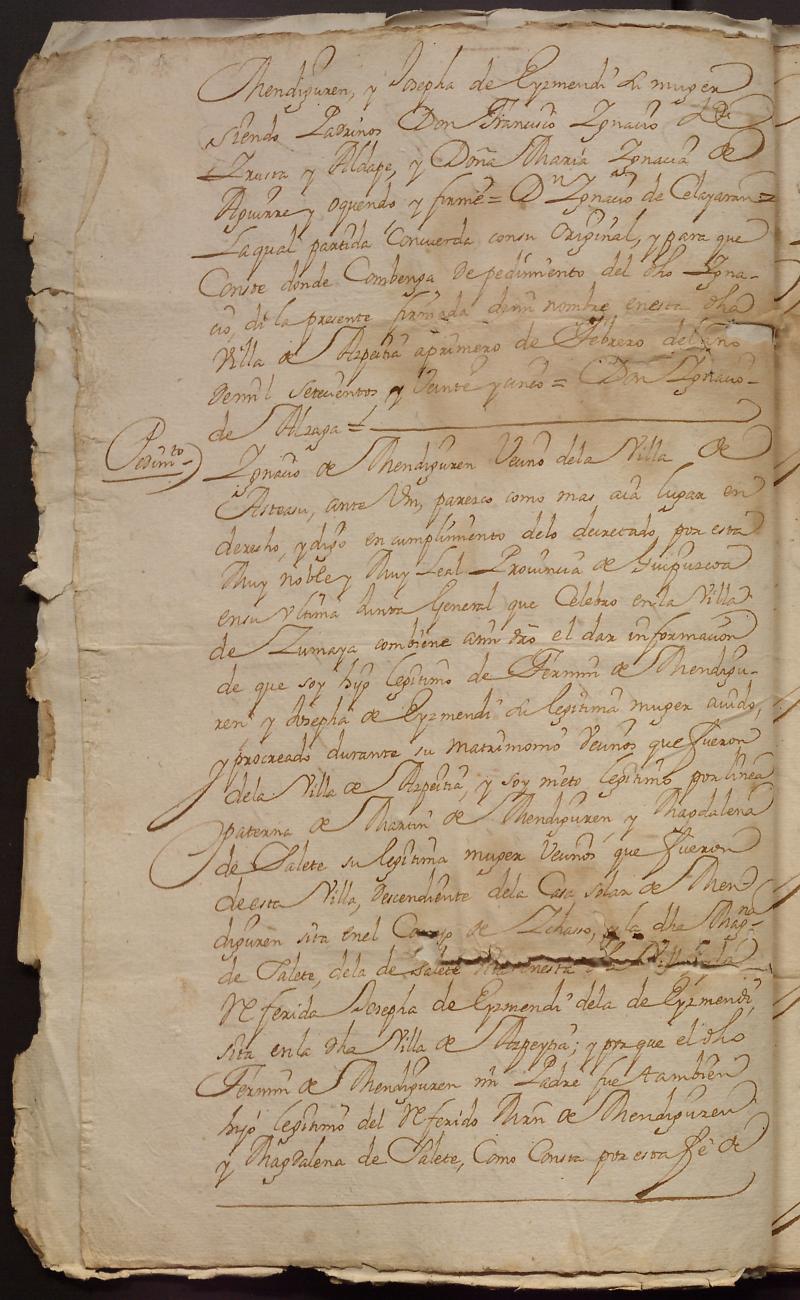 Mendiguren, y Josepha de Eyzmendi su muger
siendo Padrinos Don Francisco Ygnacio de
Yrusta y Aldape, y Doña Maria Ygnacia de
Aguirre y Oquendo y firmé = Dn Ygnacio de Celayaran =
La qual partida Concuerda con su Original, y para que
Conste donde Combenga de pedimiento del dho Ygna-
cio, di la presente firmada de mi nombre en esta dha
Villa de Azpeitia a primero de Febrero del año
de mil setecientos y Veinte y cinco = Don Ygnacio
de Alzaga =
Pedimto
Ygnacio de Mendiguren Vecino de la Villa de
Asteasu, ante Vm, paresco como mas aia lugar en
derecho, y digo en cumplimiento de lo decretado por esta
Muy noble y Muy Leal Provincia de Guipuzcoa
en su Vltima Junta General que Celebro en la Villa
de Zumaya combiene a mi dro el dar informacion
de que soy hijo legitimo de Fermin de Mendigu-
ren y Josepha de Eyzmendi su legitima muger avido,
y procreado durante su matrimonio Vecinos que fueron
de la Villa de Azpeitia, y soy nieto legitimo por linea
paterna de Martin de Mendiguren y Magdalena
de Salete su legitima muger Vecinos que fueron
de esta Villa, Descendiente de la Casa solar de Men
diguren sita en el Concejo de Ichasso, y la dha Magna
de Salete, de la de Salete sita en esta dha Villa, y la
Referida Josepha de Eyzmendi de la de Eyzmendi,
sita en la dha Villa de Azpeytia; y porque el dho
Fermin de Mendiguren mi Padre fue tambien
hijo legitimo del Referido Mrn de Mendiguren
y Magdalena de Salete, Como Consta por esta fé de